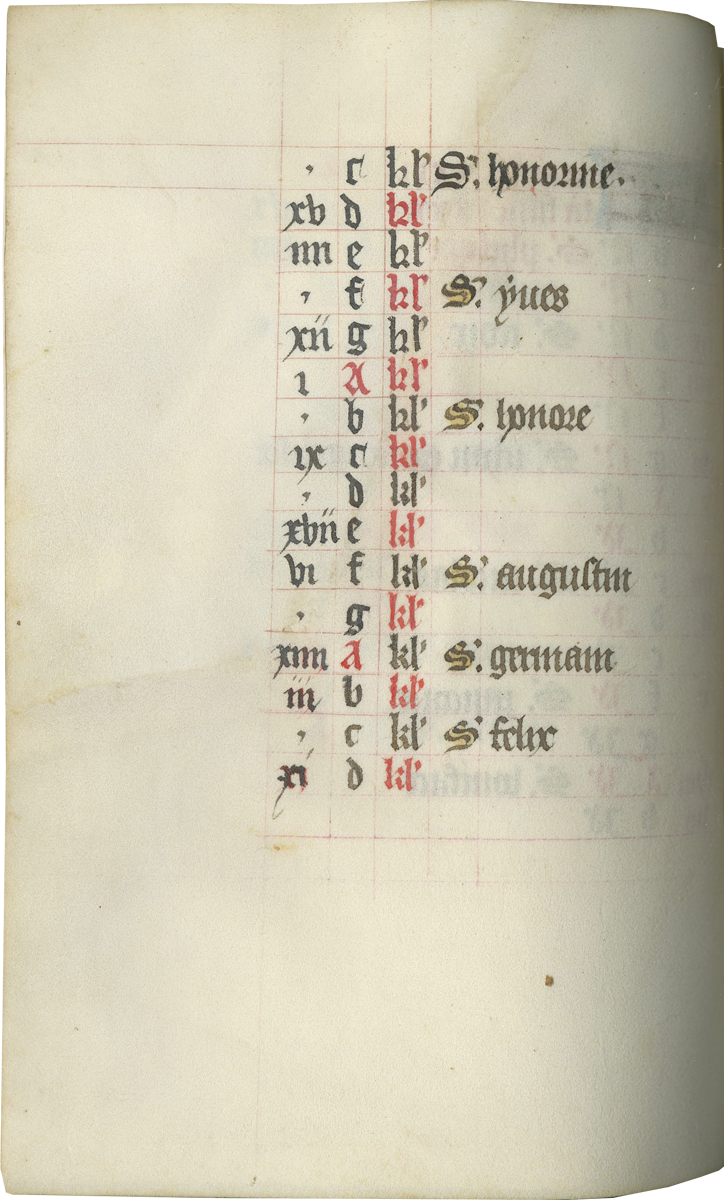 . c kl' S'. honorine.
xv d kl'
iiii e kl'
. f kl' S'. yves
xii g kl'
i A kl'
. b kl' S'. honore
ix c kl'
. d kl'
xvii e kl'
vi f kl' S'. augustin
. g kl'
xiiii A kl' S'. germain
iii b kl'
. c kl' S' felix
xi d kl'